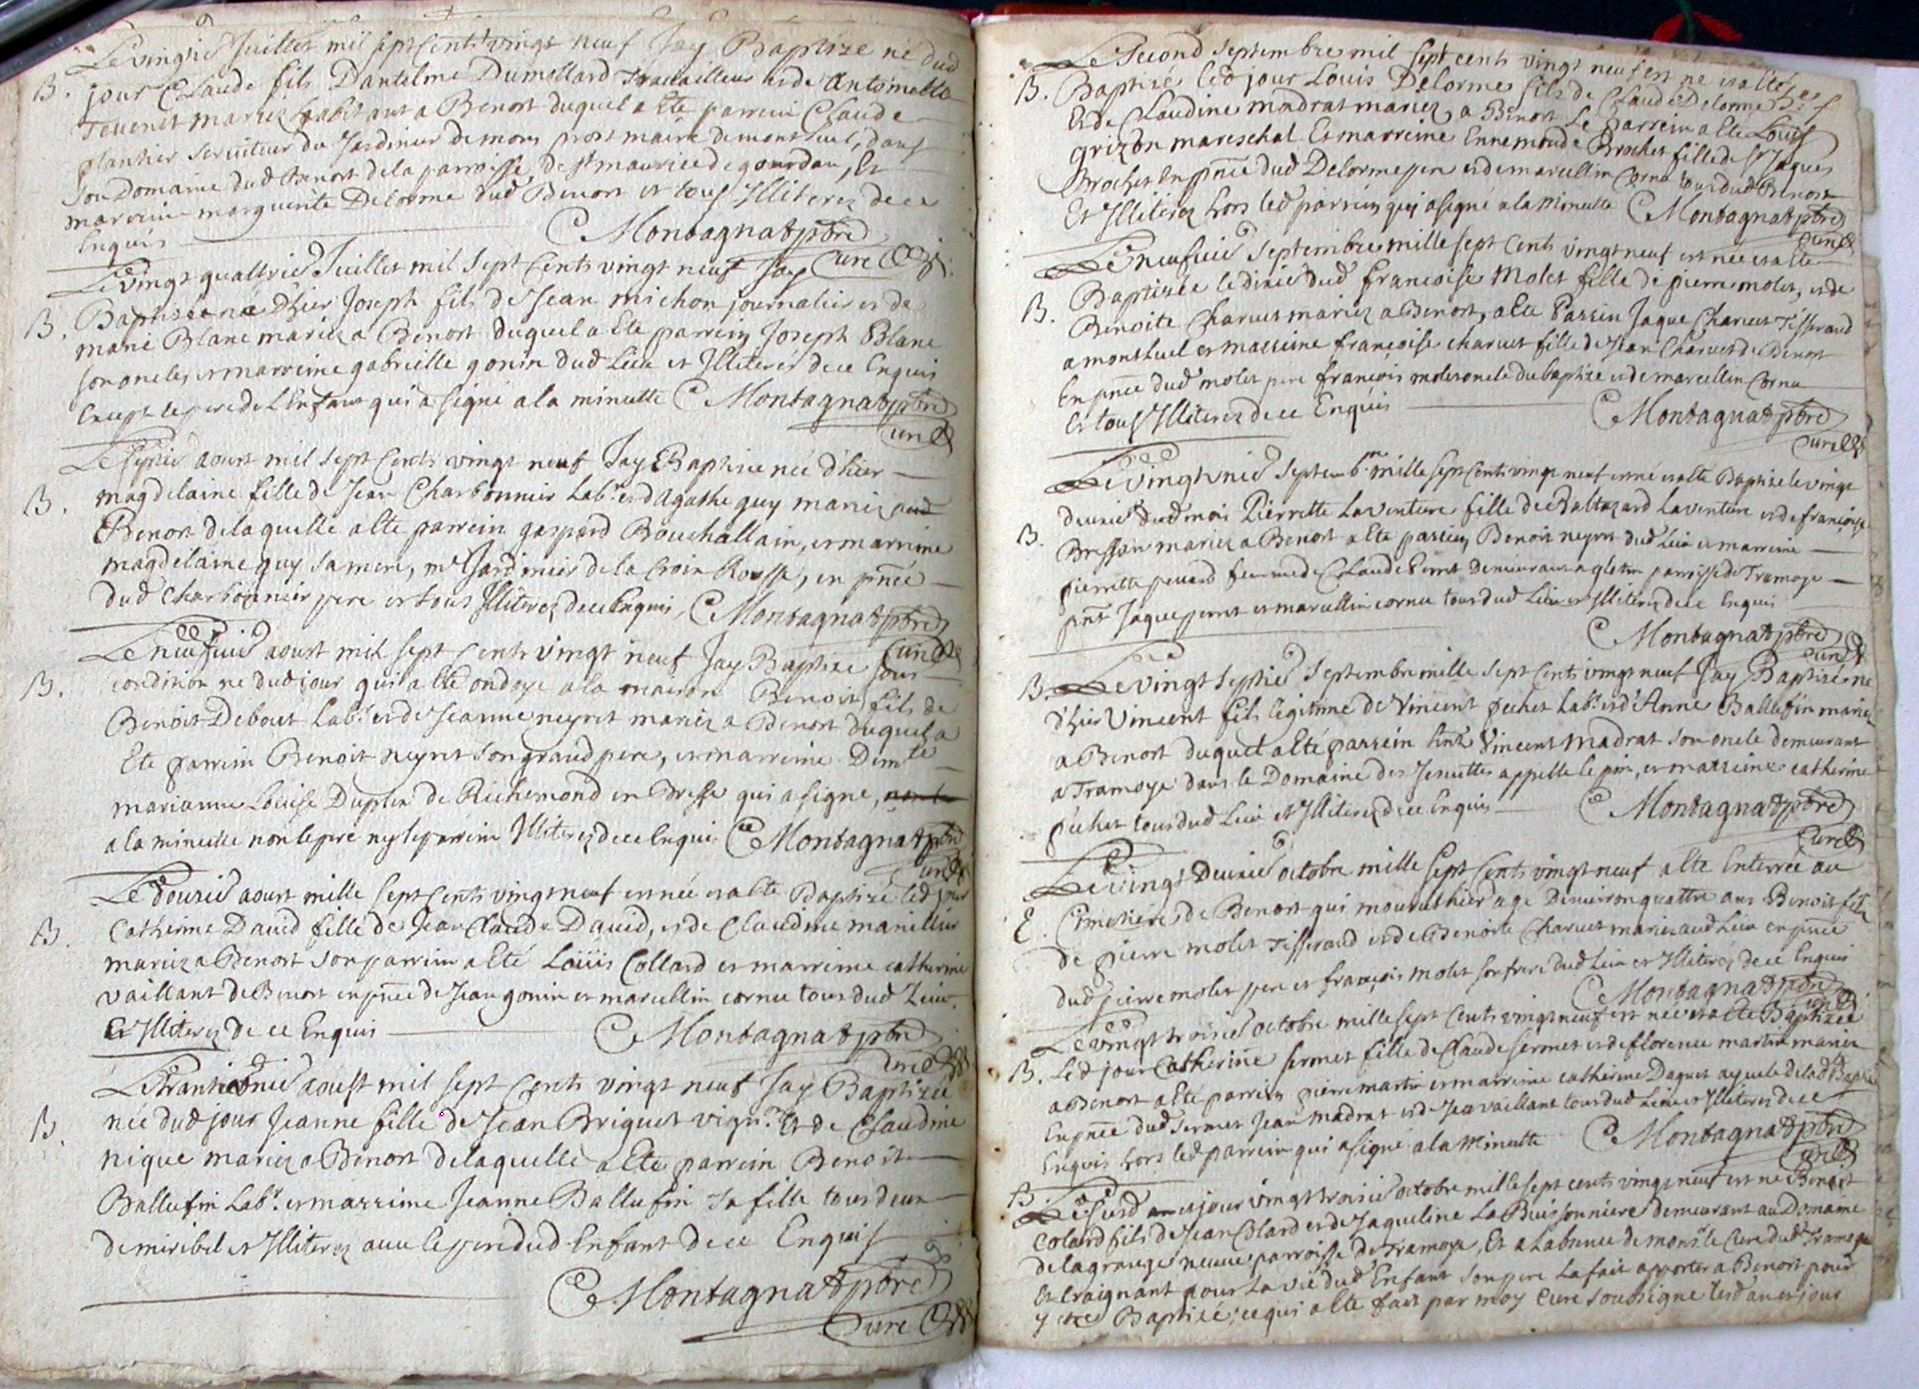 Le vingtie Juillet mil sept Cents vingt neuf Jay Baptize ne dud
B. jour Claude fils Dantelme Dumollard travailleur et de Antoinette
Tevenet mariez habitant a Benost duquel a Ete parrein Claude
plantier serviteur du Jardinier de mons prost maire de montluel, dans
son Domaine dud Benost de la parroisse de st maurice de gourdan, Et
marreine marguerite Delorme dud Benost et tous Illiterez de ce
Enquis
C Montagnat ptre
Curé
Le vingt quattrie Juillet mil sept Cents vingt neuf Jay
B. Baptisé né d'hier Joseph fils de Jean michon journalier et de
marie Blanc mariez a Benost duquel a Ete parrein Joseph Blanc
son oncle, et marreine gabrielle gonin dud Lieu et Illiterés de ce Enquis
Except le pere de L'Enfant qui a signé a la minutte C Montagnat ptre
Curé
Le septie aoust mil sept Cents vingt neuf Jay Baptize née d'hier
B. magdelaine fille de Jean Charbonnier Labr et d'Agathe guy mariez aud
Benost de laquelle a ete parrein gaspard Bouchallain, et marreine
magdelaine guy sa mere, mr Jardinier de la Croix Rousse, en pnce
dud Charbonnier pere et tous Illiterez de ce Enquis, C Montagnat ptre
Curé
Le neufvie aoust mil sept Cents vingt neuf Jay Baptize sous
B. condition ne dud jour qui a ete ondoye a la maison Benoist fils de
Benoist Debout Labr et de Jeanne neyret mariez a Benost duquel a
Ete parrein Benoist neyret son grand pere, et marreine Demlle
marianne Loüise Duplex de Richemond en Bresse qui a signe,
a la minutte non le pere ny le parrein Illiterez de ce Enquis C Montagnat ptre
Curé
Le douzie aoust mille sept Cents vingt neuf est née et a Ete Baptizé led jour
B. Catherine David fille de Jean Claude David, et de Claudine manillier
mariez a Benost son parrein a Eté Loüis Collard et marreine catherine
vaillant de Benost en pnce de Jean gonin et marcellin cornu tous dud Lieu
Et Illiterez de ce Enquis
C Montagnat ptre
Curé
Le trantie aoust mil sept Cents vingt neuf Jay Baptizée
B. née dud jour Jeanne fille de Jean Briguet vign. Et de Claudine
nique mariez a Benost de laquelle a Ete parrein Benoist
Ballufin Labr. et marreine Jeanne Ballufin sa fille tous deux
de miribel et Illiterez avec le pere dud Enfant de ce Enquis
C Montagnat ptre
Curé
Le second septembre mil sept cents vingt neuf est ne et a Ete
B. Baptizé led jour Louis Delorme fils de Claude Delorme
Et de Claudine madrat mariez a Benost Le parrein a Ete Louis
grizon mareschal Et marreine Ennemonde Brochet fille de sr Jaques
Brochet En pnce dud Delorme pere et de marcellin Cornu tous dud Benost
Et Illiterez hors led parrein qui a signé a la Minutte C Montagnat ptre
Curé
Le neufvie septembre mille sept Cents vingt neuf est née et a Ete
Baptizée le dixie dud francoise Molet fille de pierre molet, et de
B. Benoite Charvet mariez a Benost, a Ete Parrin Jaque Charvet Tisserand
a montluel et marreine francoise charvet fille de Jean Charvet de Benost
En pnce dud molet pere françois molet oncle du baptize et de marcellin Cornu
Et tous Illiterez de ce Enquis
C Montagnat ptre
Curé
Le vingt unie septembre mille sept Cents vingt neuf est né et a Ete Baptize le vingt
deuxie dud mois Pierrette Laventure fille de Baltazard Laventure et de françoise
B. Bressan mariez a Benost a Ete parrein Benoist neyret dud Lieu et marreine
pierrette penard femme de Claude Perret demeurant a gletin parroisse de Tramoye
pnt Jaque perret et marcellin cornu tous dud Lieu et Illiterez de ce Enquis
C Montagnat ptre
Curé
B. Le vingt septie septembre mille sept Cents vingt neuf Jay Baptizé né
d'hier Vincent fils legitime de Vincent pechet Labr et d'Anne Ballufin mariez
a Benost duquel a Eté parrein Vincent Madrat son oncle demeurant
a Tramoye dans le Domaine des Jesuittes appelle le pin, et marreine catherine
pechet tous dud Lieu et Illiterez de ce Enquis
C Montagnat ptre
Curé
Le vingt deuxie octobre mille sept Cents vingt neuf a Ete Enterrée au
E. Cimetière de Benost qui mourut hier age d'environ quattre ans Benoist fils
de pierre molet Tisserand et de Benoite Charvet mariez aud Lieu en pnce
dud pierre molet pere et françois molet son frere dud Lieu et Illiterez de ce Enquis
C Montagnat ptre
Curé
Le vingt troisie octobre mille sept Cents vingt neuf est née et a Ete Baptizée
B. Led jour Catherine sermet fille de Claude sermet et de florence martin mariez
a Benost a Ete parrein pierre martin et marreine catherine Daquet ayeule de lad Baptizée
En pnce dud sermet Jean madrat et de Jean vaillant tous dud Lieu et Illiterez de ce
Enquis hors led parrein qui a signé a la Minutte C Montagnat ptre
Curé
B. Le susd an et jour vingt troisie octobre mille sept cents vingt neuf est ne Benoist
Colard fils de Jean Colard et de Jaqueline La Buissonniere demeurant au Domaine
de la grange neuve parroisse de Tramoye, Et a Labsence de monsr le Curé dud Tramoye
Et Craignant pour La vie dud Enfant son pere La fait apporter a Benost pour
y etre Baptizé, ce qui a Ete fait par moy Curé soussigné lesd an et jour